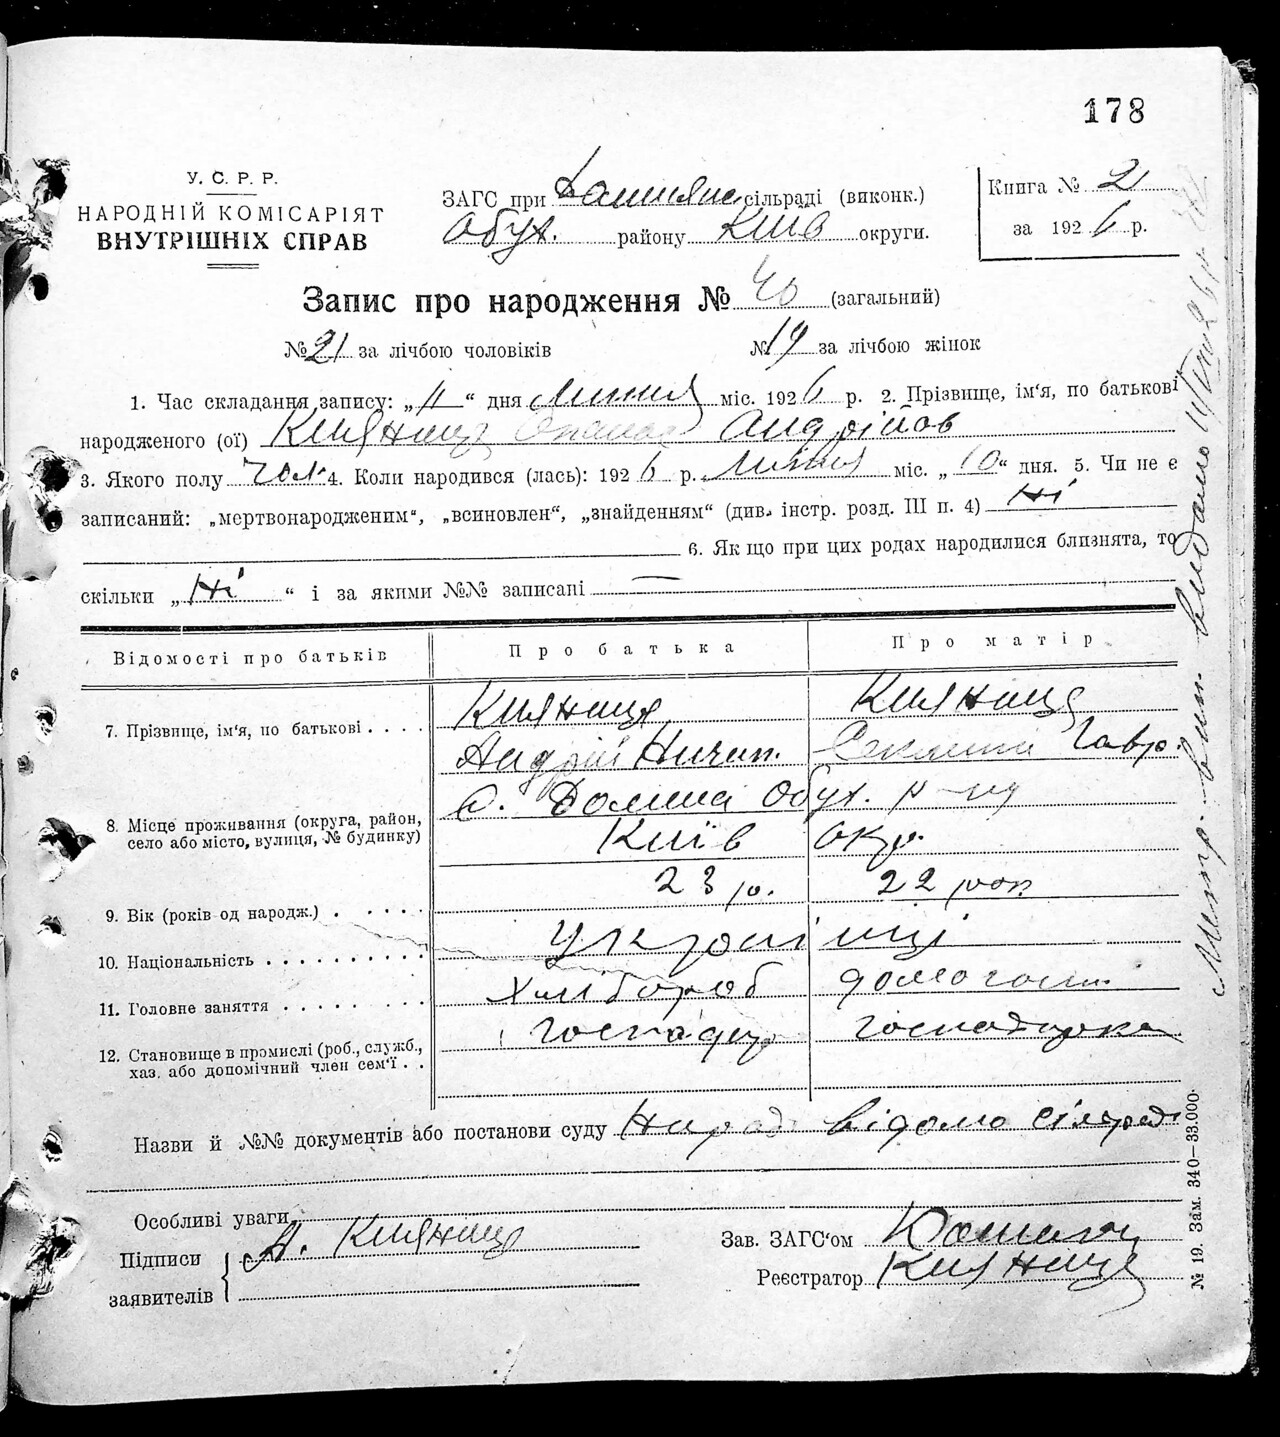 178
У. С. Р. Р.
НАРОДНІЙ КОМІСАРІЯТ
ВНУТРІШНІХ СПРАВ
ЗАГС при сільраді (виконк.)
Обух. району Київ округи.
Книга № 2
за 1926 р.
Запис про народження № 40 (загальний)
№ 21 за лічбою чоловіків № 19 за лічбою жінок
1. Час складання запису: „11“ дня Липня міс. 1926 р. 2. Прізвище, ім'я, по батькові
народженого (ої) Кияниця Андрійов
3. Якого полу чол 4. Коли народився (лась): 1926 р. Липня міс. „10“ дня. 5. Чи не є
записаний: „мертвонародженим“, „всиновлен“, „знайденням“ (див. інстр. розд. III п. 4) Ні
6. Якщо при цих родах народилися близнята, то
скільки „Ні“ і за якими №№ записані —
Відомості про батьків Про батька Про матір
7. Прізвище, ім'я, по батькові . . . . Кияниця Кияниця
Андрій Ничип. Гавр.
8. Місце проживання (округа, район, село або місто, вулиця, № будинку) с. Долина Обух. р-ну
Київ окр.
9. Вік (років од народж.) . . . . . 23 р. 22 рок
10. Національність . . . . . . . . . . українці
11. Головне заняття . . . . . . . . . Хлібороб домогосп.
12. Становище в промислі (роб., служб., хаз. або допомічний член сем'ї . . господар господарка
Назви й №№ документів або постанови суду відомо сільраді
Особливі уваги
Підписи заявителів А. Кияниця
Зав. ЗАГС'ом
Реєстратор Кияниця
№ 19. Зам. 340—33.000.
Метр. вип. видано